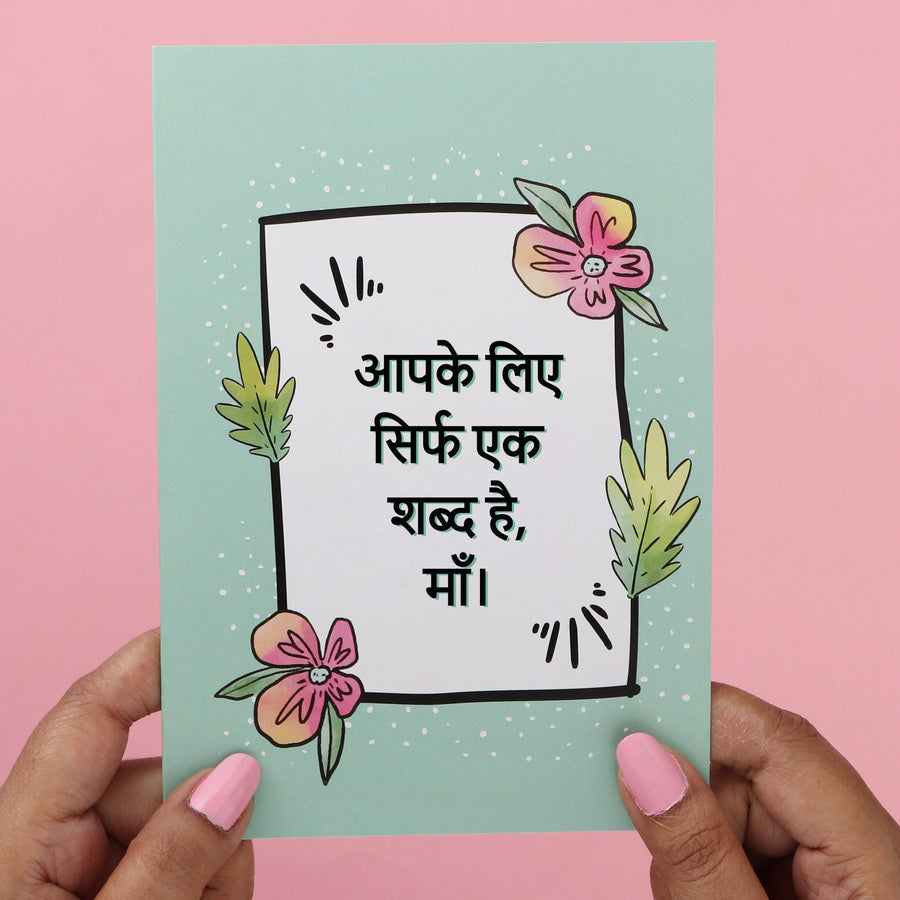 आपके लिए
सिर्फ एक
शब्द है,
माँ।